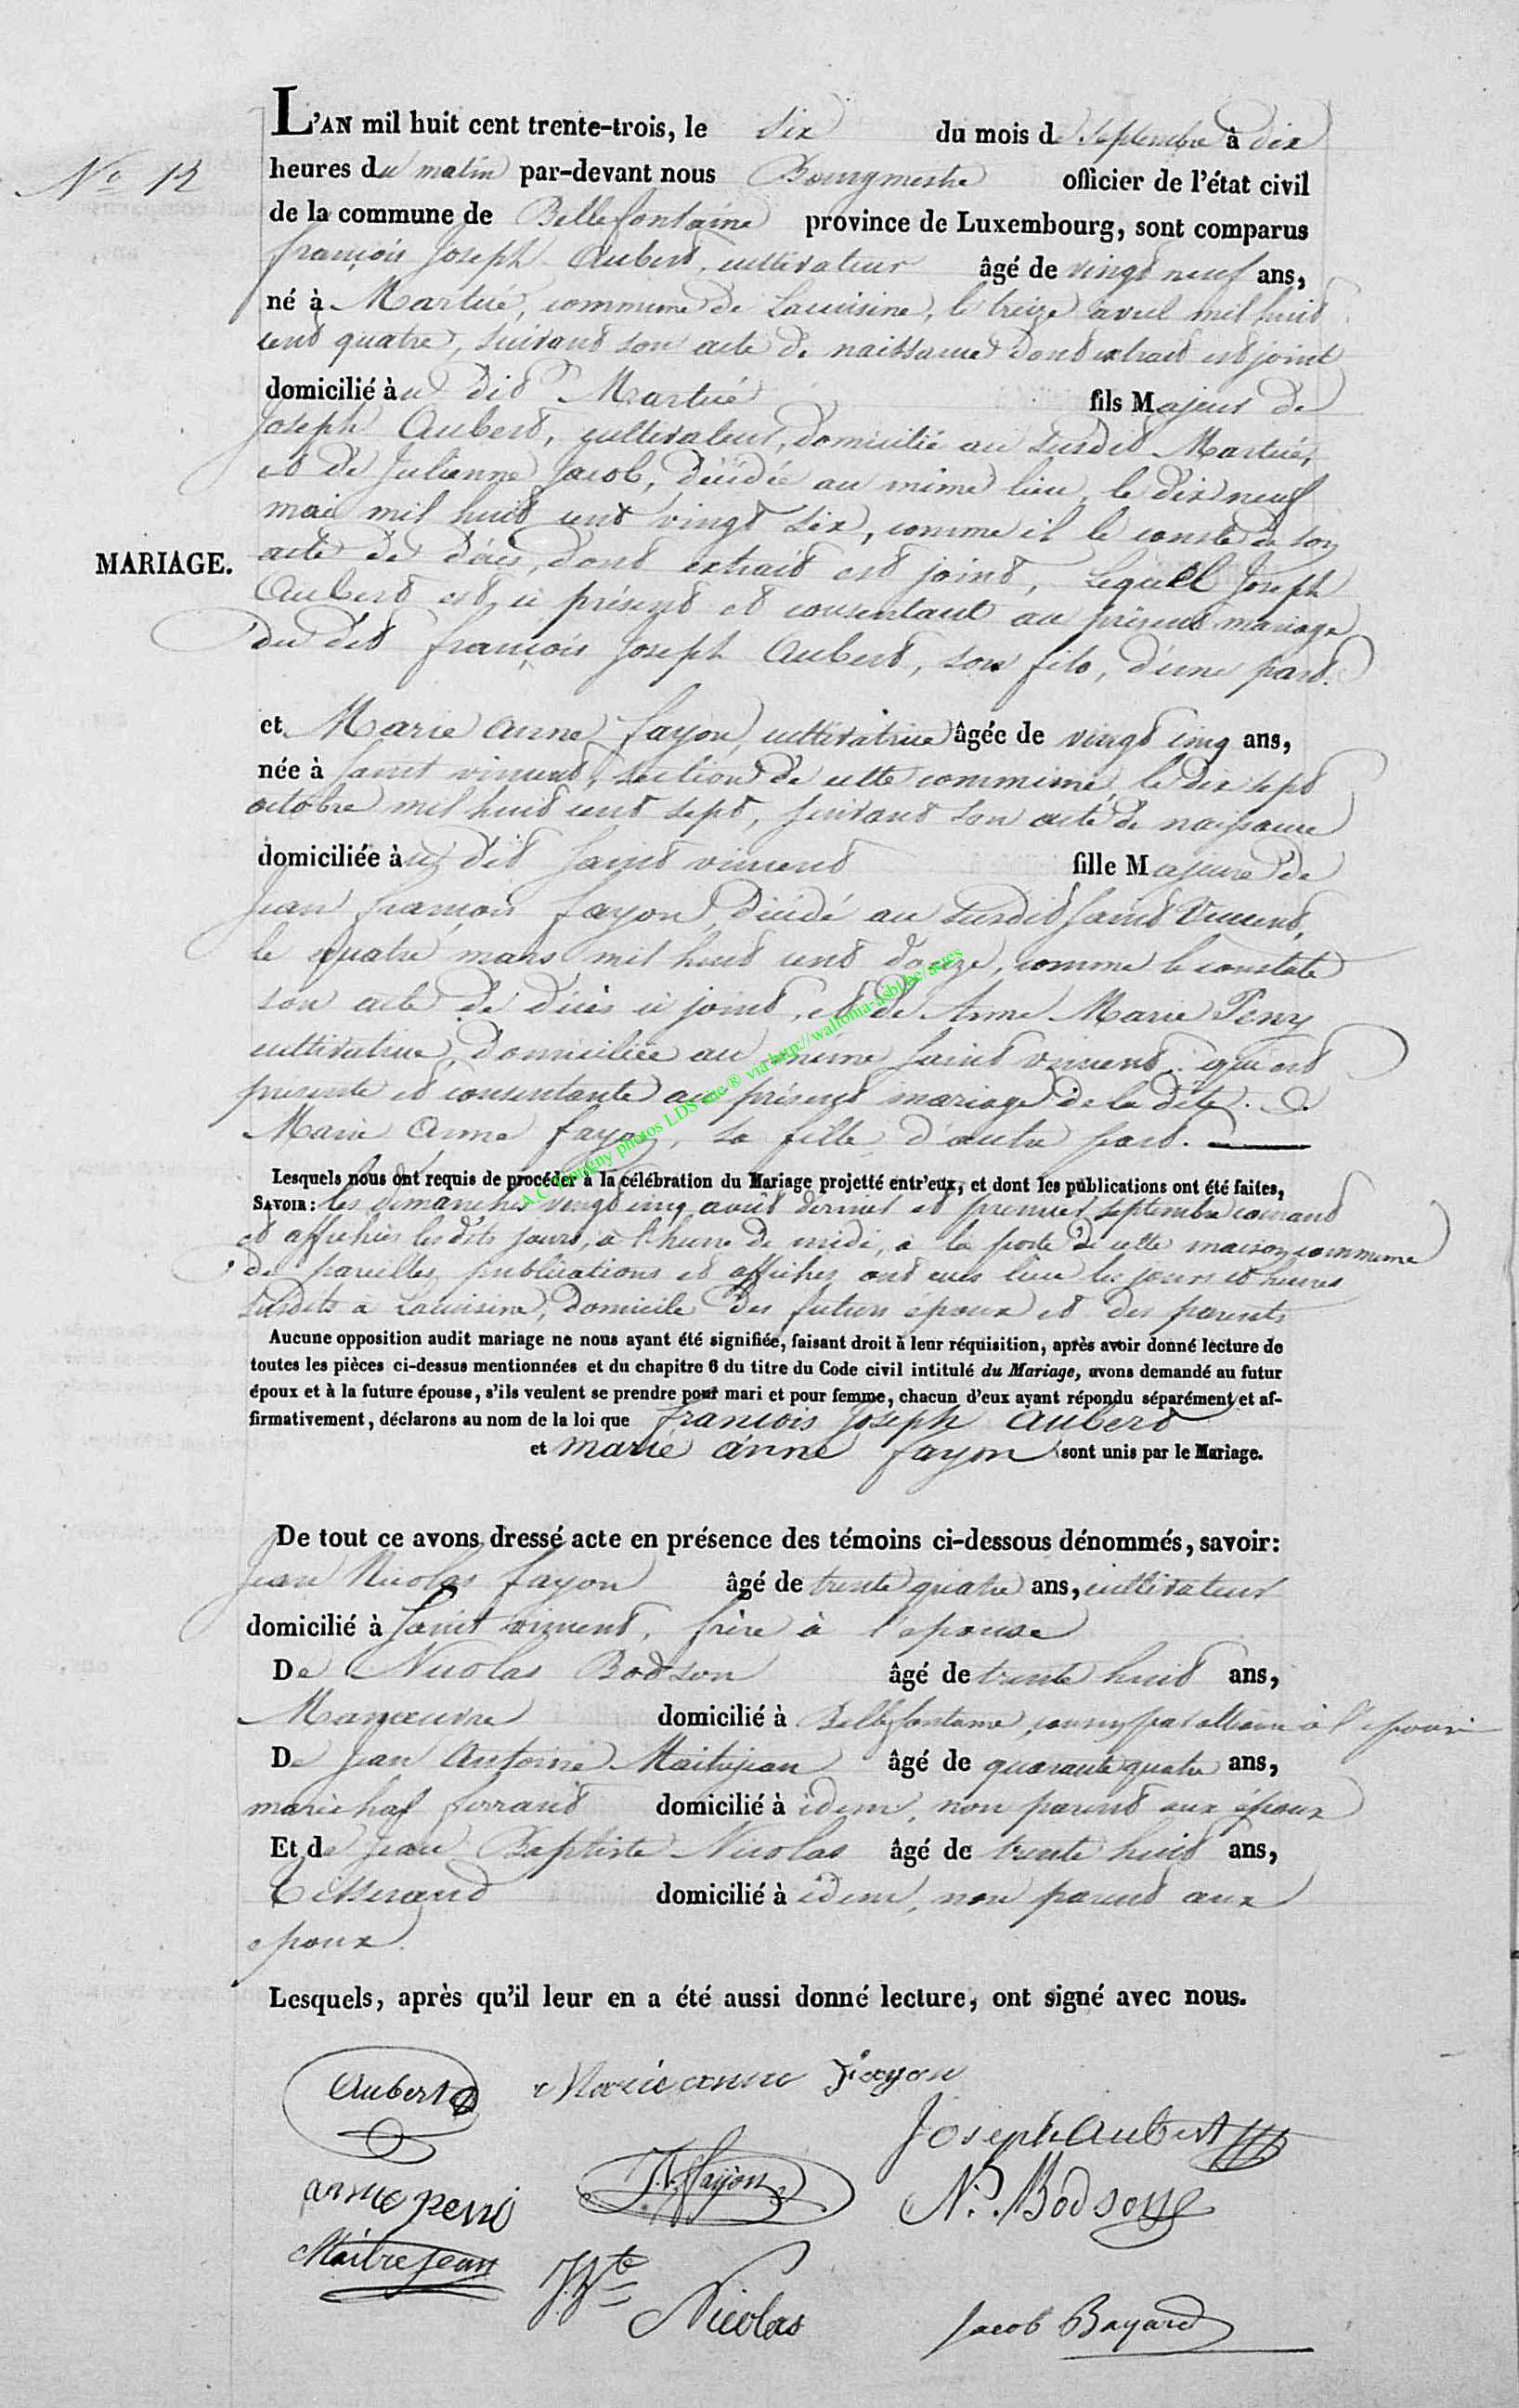 L'AN mil huit cent trente-trois, le six du mois de Septembre à dix
No 12
heures du matin par-devant nous Bourgmestre officier de l'état civil
de la commune de Bellefontaine province de Luxembourg, sont comparus
françois Joseph Aubert, cultivateur âgé de vingt neuf ans,
né à Martué, commune de Lacuisine, le treize avril mil huit
cent quatre, suivant son acte de naissance dont extrait est joint
domicilié au dit Martué fils Majeur de
Joseph Aubert, cultivateur, domicilié au susdit Martué,
et de Julienne Jacob, décédée au même lieu, le dix neuf
mai mil huit cent vingt six, comme il le conste de son
MARIAGE.
acte de décès, dont extrait est joint, Lequel Joseph
Aubert est ici présent et consentant au présent mariage
du dit françois Joseph Aubert, son fils, d'une part.
et Marie Anne fayon, cultivatrice âgée de vingt cinq ans,
née à Saint vincent, section de cette commune, le dix sept
octobre mil huit cent sept, suivant son acte de naissance
domiciliée au dit Saint vincent fille Majeure de
Jean françois fayon, décédé au susdit Saint Vincent,
le quatre mars mil huit cent douze, comme le constate
son acte de décès ci joint, et de Anne Marie Peny
cultivatrice, domiciliée au même Saint vincent, qui est
présente et consentante au présent mariage de la dite
Marie Anne fayon, sa fille, d'autre part.
Lesquels nous ont requis de procéder à la célébration du Mariage projetté entr'eux, et dont les publications ont été faites,
SAVOIR: les dimanches vingt cinq août dernier et premier septembre courant
et affichées les dits jours, à l'heure de midi, à la porte de cette maison commune
de pareilles publications et affiches ont eues lieu les jours et heures
susdits à Lacuisine, domicile des futurs époux et des parents
Aucune opposition audit mariage ne nous ayant été signifiée, faisant droit à leur réquisition, après avoir donné lecture de
toutes les pièces ci-dessus mentionnées et du chapitre 6 du titre du Code civil intitulé du Mariage, avons demandé au futur
époux et à la future épouse, s'ils veulent se prendre pour mari et pour femme, chacun d'eux ayant répondu séparément et af-
firmativement, déclarons au nom de la loi que françois Joseph Aubert
et marie anne fayon sont unis par le Mariage.
De tout ce avons dressé acte en présence des témoins ci-dessous dénommés, savoir:
Jean Nicolas fayon âgé de trente quatre ans, cultivateur
domicilié à Saint vincent, frère à l'épouse
De Nicolas Bodson âgé de trente huit ans,
Manoeuvre domicilié à Bellefontaine, cousin par alliance à l'épouse
De Jean Antoine Maitrejean âgé de quarante quatre ans,
maréchal ferrant domicilié à idem, non parent aux époux
Et de Jean Baptiste Nicolas âgé de trente huit ans,
tisserand domicilié à idem, non parent aux
époux.
Lesquels, après qu'il leur en a été aussi donné lecture, ont signé avec nous.
Aubert Marie anne fayon
Joseph Aubert
anne peni J.N. Fayon N. Bodson
Maitrejean J. Bte
Nicolas Jacob Bayard
via http://wallonia-asbl.be/actes